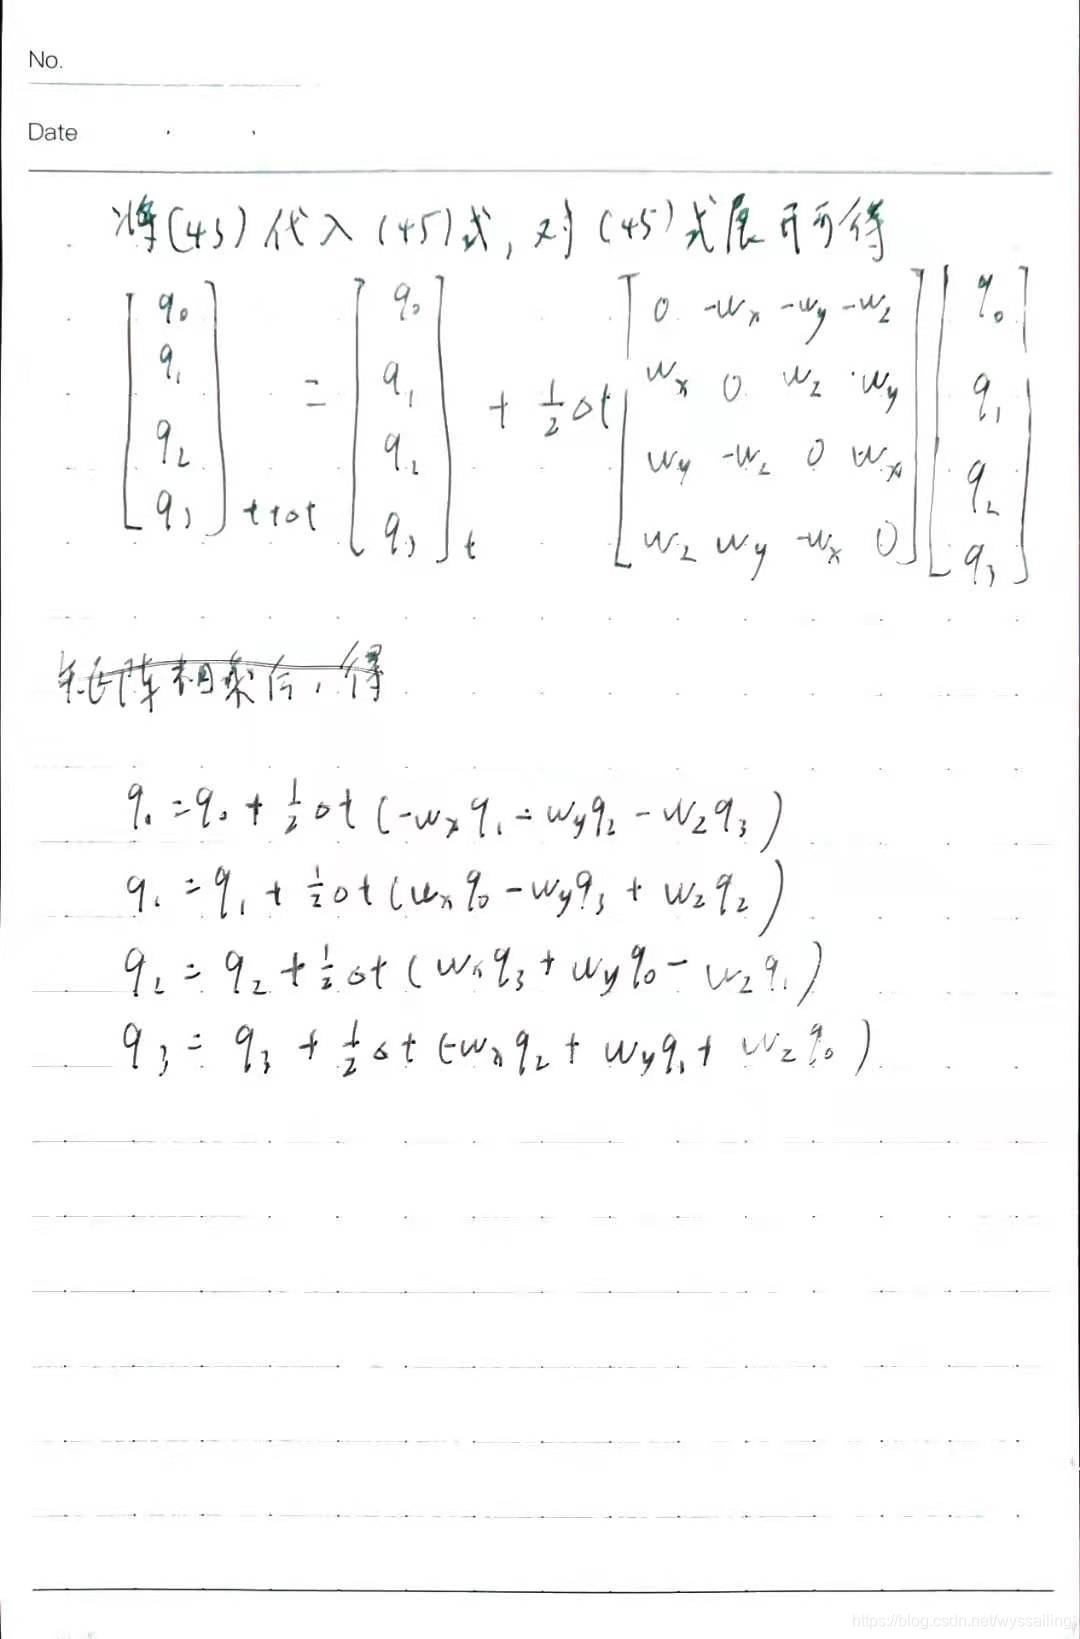 No.
Date
将(43)代入(45)式,对(45)式展开可得
[q₀ q₁ q₂ q₃]t+Δt = [q₀ q₁ q₂ q₃]t + 1/2 Δt [0 -wx -wy -wz; wx 0 wz -wy; wy -wz 0 wx; wz wy -wx 0] [q₀ q₁ q₂ q₃]
矩阵相乘后,得
q₀ = q₀ + 1/2 Δt (-wx q₁ - wy q₂ - wz q₃)
q₁ = q₁ + 1/2 Δt (wx q₀ - wy q₃ + wz q₂)
q₂ = q₂ + 1/2 Δt (wx q₃ + wy q₀ - wz q₁)
q₃ = q₃ + 1/2 Δt (-wx q₂ + wy q₁ + wz q₀)
https://blog.csdn.net/wyssailing